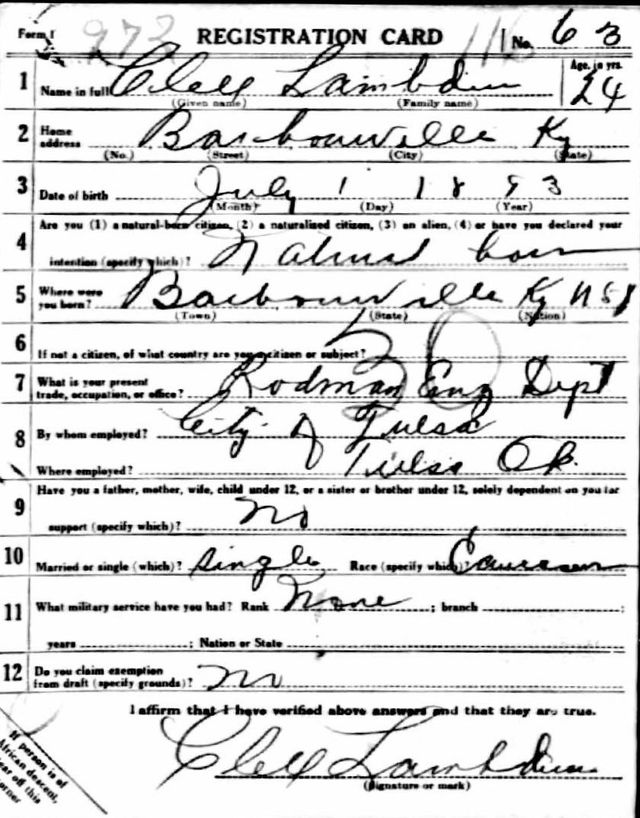 Form 1 273 REGISTRATION CARD No. 63
1 Name in full Clell Lambdin Age, in yrs. 24
(Given name) (Family name)
2 Home address Barbourville Ky
(No.) (Street) (City) (State)
3 Date of birth July 1 1893
(Month) (Day) (Year)
4 Are you (1) a natural-born citizen, (2) a naturalized citizen, (3) an alien, (4) or have you declared your
intention (specify which)? Natural born
5 Where were you born? Barbourville Ky
(Town) (State) (Nation)
6 If not a citizen, of what country are you a citizen or subject?
7 What is your present trade, occupation, or office? Rodman Eng Dept
8 By whom employed? City of Tulsa
Where employed? Tulsa Ok.
9 Have you a father, mother, wife, child under 12, or a sister or brother under 12, solely dependent on you for
support (specify which)? no
10 Married or single (which)? single Race (specify which)?
11 What military service have you had? Rank None ; branch ;
years ; Nation or State
12 Do you claim exemption from draft (specify grounds)? no
I affirm that I have verified above answers and that they are true.
Clell Lambdin
(Signature or mark)
If person is of
African descent,
tear off this
corner